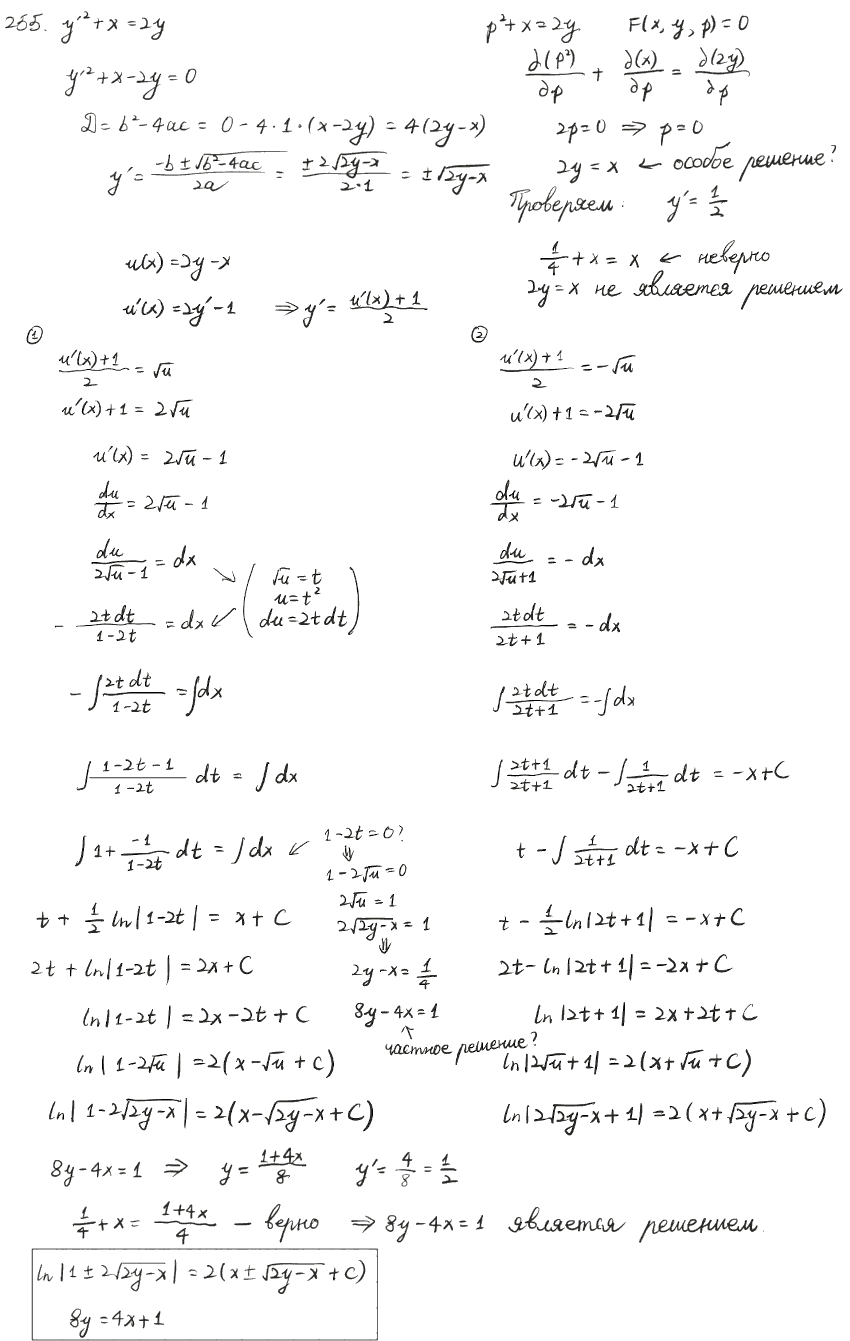 255. y'² + x = 2y
y'² + x - 2y = 0
D = b² - 4ac = 0 - 4·1·(x - 2y) = 4(2y - x)
y' = (-b ± √(b² - 4ac))/2a = (±2√(2y - x))/(2·1) = ±√(2y - x)
p² + x = 2y F(x, y, p) = 0
∂(p²)/∂p + ∂(x)/∂p = ∂(2y)/∂p
2p = 0 ⇒ p = 0
2y = x ← особое решение?
Проверяем: y' = 1/2
1/4 + x = x ← неверно
2y = x не является решением
u(x) = 2y - x
u'(x) = 2y' - 1 ⇒ y' = (u'(x) + 1)/2
①
(u'(x) + 1)/2 = √u
u'(x) + 1 = 2√u
u'(x) = 2√u - 1
du/dx = 2√u - 1
du/(2√u - 1) = dx
(√u = t
u = t²
du = 2t dt)
- 2t dt/(1 - 2t) = dx
- ∫ 2t dt/(1 - 2t) = ∫dx
∫ (1 - 2t - 1)/(1 - 2t) dt = ∫ dx
∫ 1 + (-1)/(1 - 2t) dt = ∫dx ←
1 - 2t = 0?
⇓
1 - 2√u = 0
2√u = 1
2√(2y - x) = 1
⇓
2y - x = 1/4
8y - 4x = 1
↑
частное решение?
t + 1/2 ln|1 - 2t| = x + C
2t + ln|1 - 2t| = 2x + C
ln|1 - 2t| = 2x - 2t + C
ln|1 - 2√u| = 2(x - √u + C)
ln|1 - 2√(2y - x)| = 2(x - √(2y - x) + C)
②
(u'(x) + 1)/2 = -√u
u'(x) + 1 = -2√u
u'(x) = -2√u - 1
du/dx = -2√u - 1
du/(2√u + 1) = - dx
2t dt/(2t + 1) = - dx
∫ 2t dt/(2t + 1) = -∫ dx
∫ (2t + 1)/(2t + 1) dt - ∫ 1/(2t + 1) dt = -x + C
t - ∫ 1/(2t + 1) dt = -x + C
t - 1/2 ln|2t + 1| = -x + C
2t - ln|2t + 1| = -2x + C
ln|2t + 1| = 2x + 2t + C
ln|2√u + 1| = 2(x + √u + C)
ln|2√(2y - x) + 1| = 2(x + √(2y - x) + C)
8y - 4x = 1 ⇒ y = (1 + 4x)/8 y' = 4/8 = 1/2
1/4 + x = (1 + 4x)/4 — верно ⇒ 8y - 4x = 1 является решением.
ln|1 ± 2√(2y - x)| = 2(x ± √(2y - x) + C)
8y = 4x + 1